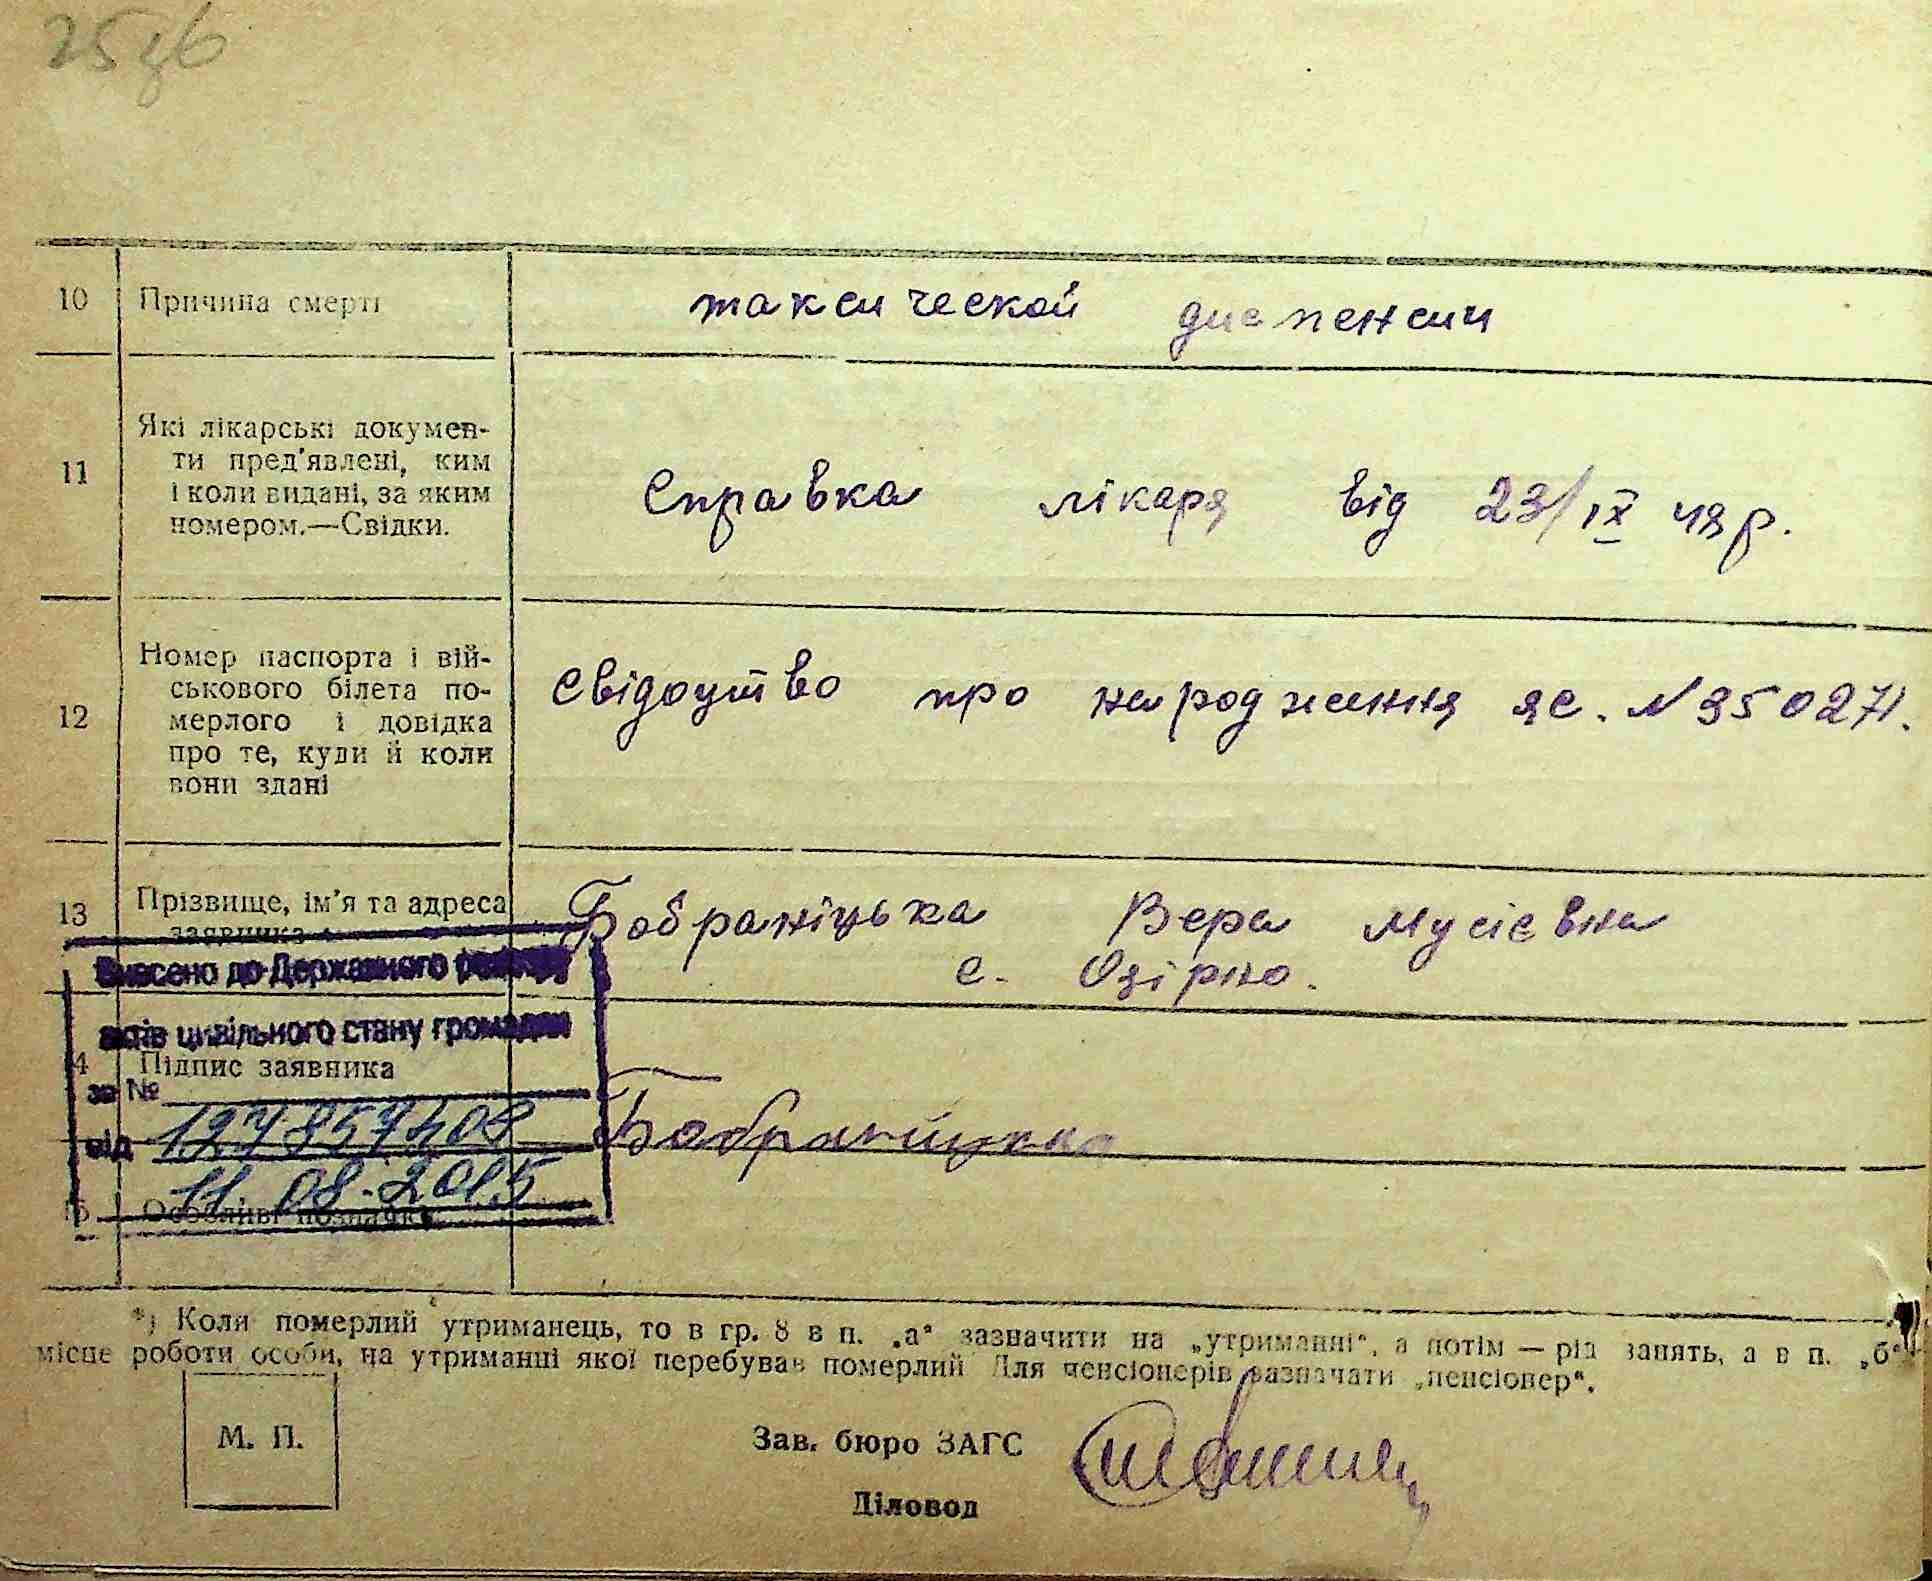 10 Причина смерті
таксической диспенсии
11 Які лікарські докумен-
ти пред'явлені, ким
і коли видані, за яким
номером.—Свідки.
Справка лікаря від 23/IX 49р.
12 Номер паспорта і вій-
ськового білета по-
мерлого і довідка
про те, куди й коли
вони здані
Свідоцтво про народження яс. №
13 Прізвище, ім'я та адреса
заявника
Бобраніцька Вера Мусієвна
с. Озірно.
Внесено до Державного реєстру
актів цивільного стану громадян
14 Підпис заявника
за №
від
11.08.2015
Бобраніцька
15 Особливі позначки
*) Коли померлий утриманець, то в гр. 8 в п. „а“ зазначити на „утриманні“, а потім — рід занять, а в п. „б“
місце роботи особи, на утриманні якої перебував померлий Для пенсіонерів зазначати „пенсіонер“.
М. П.
Зав. бюро ЗАГС
Діловод